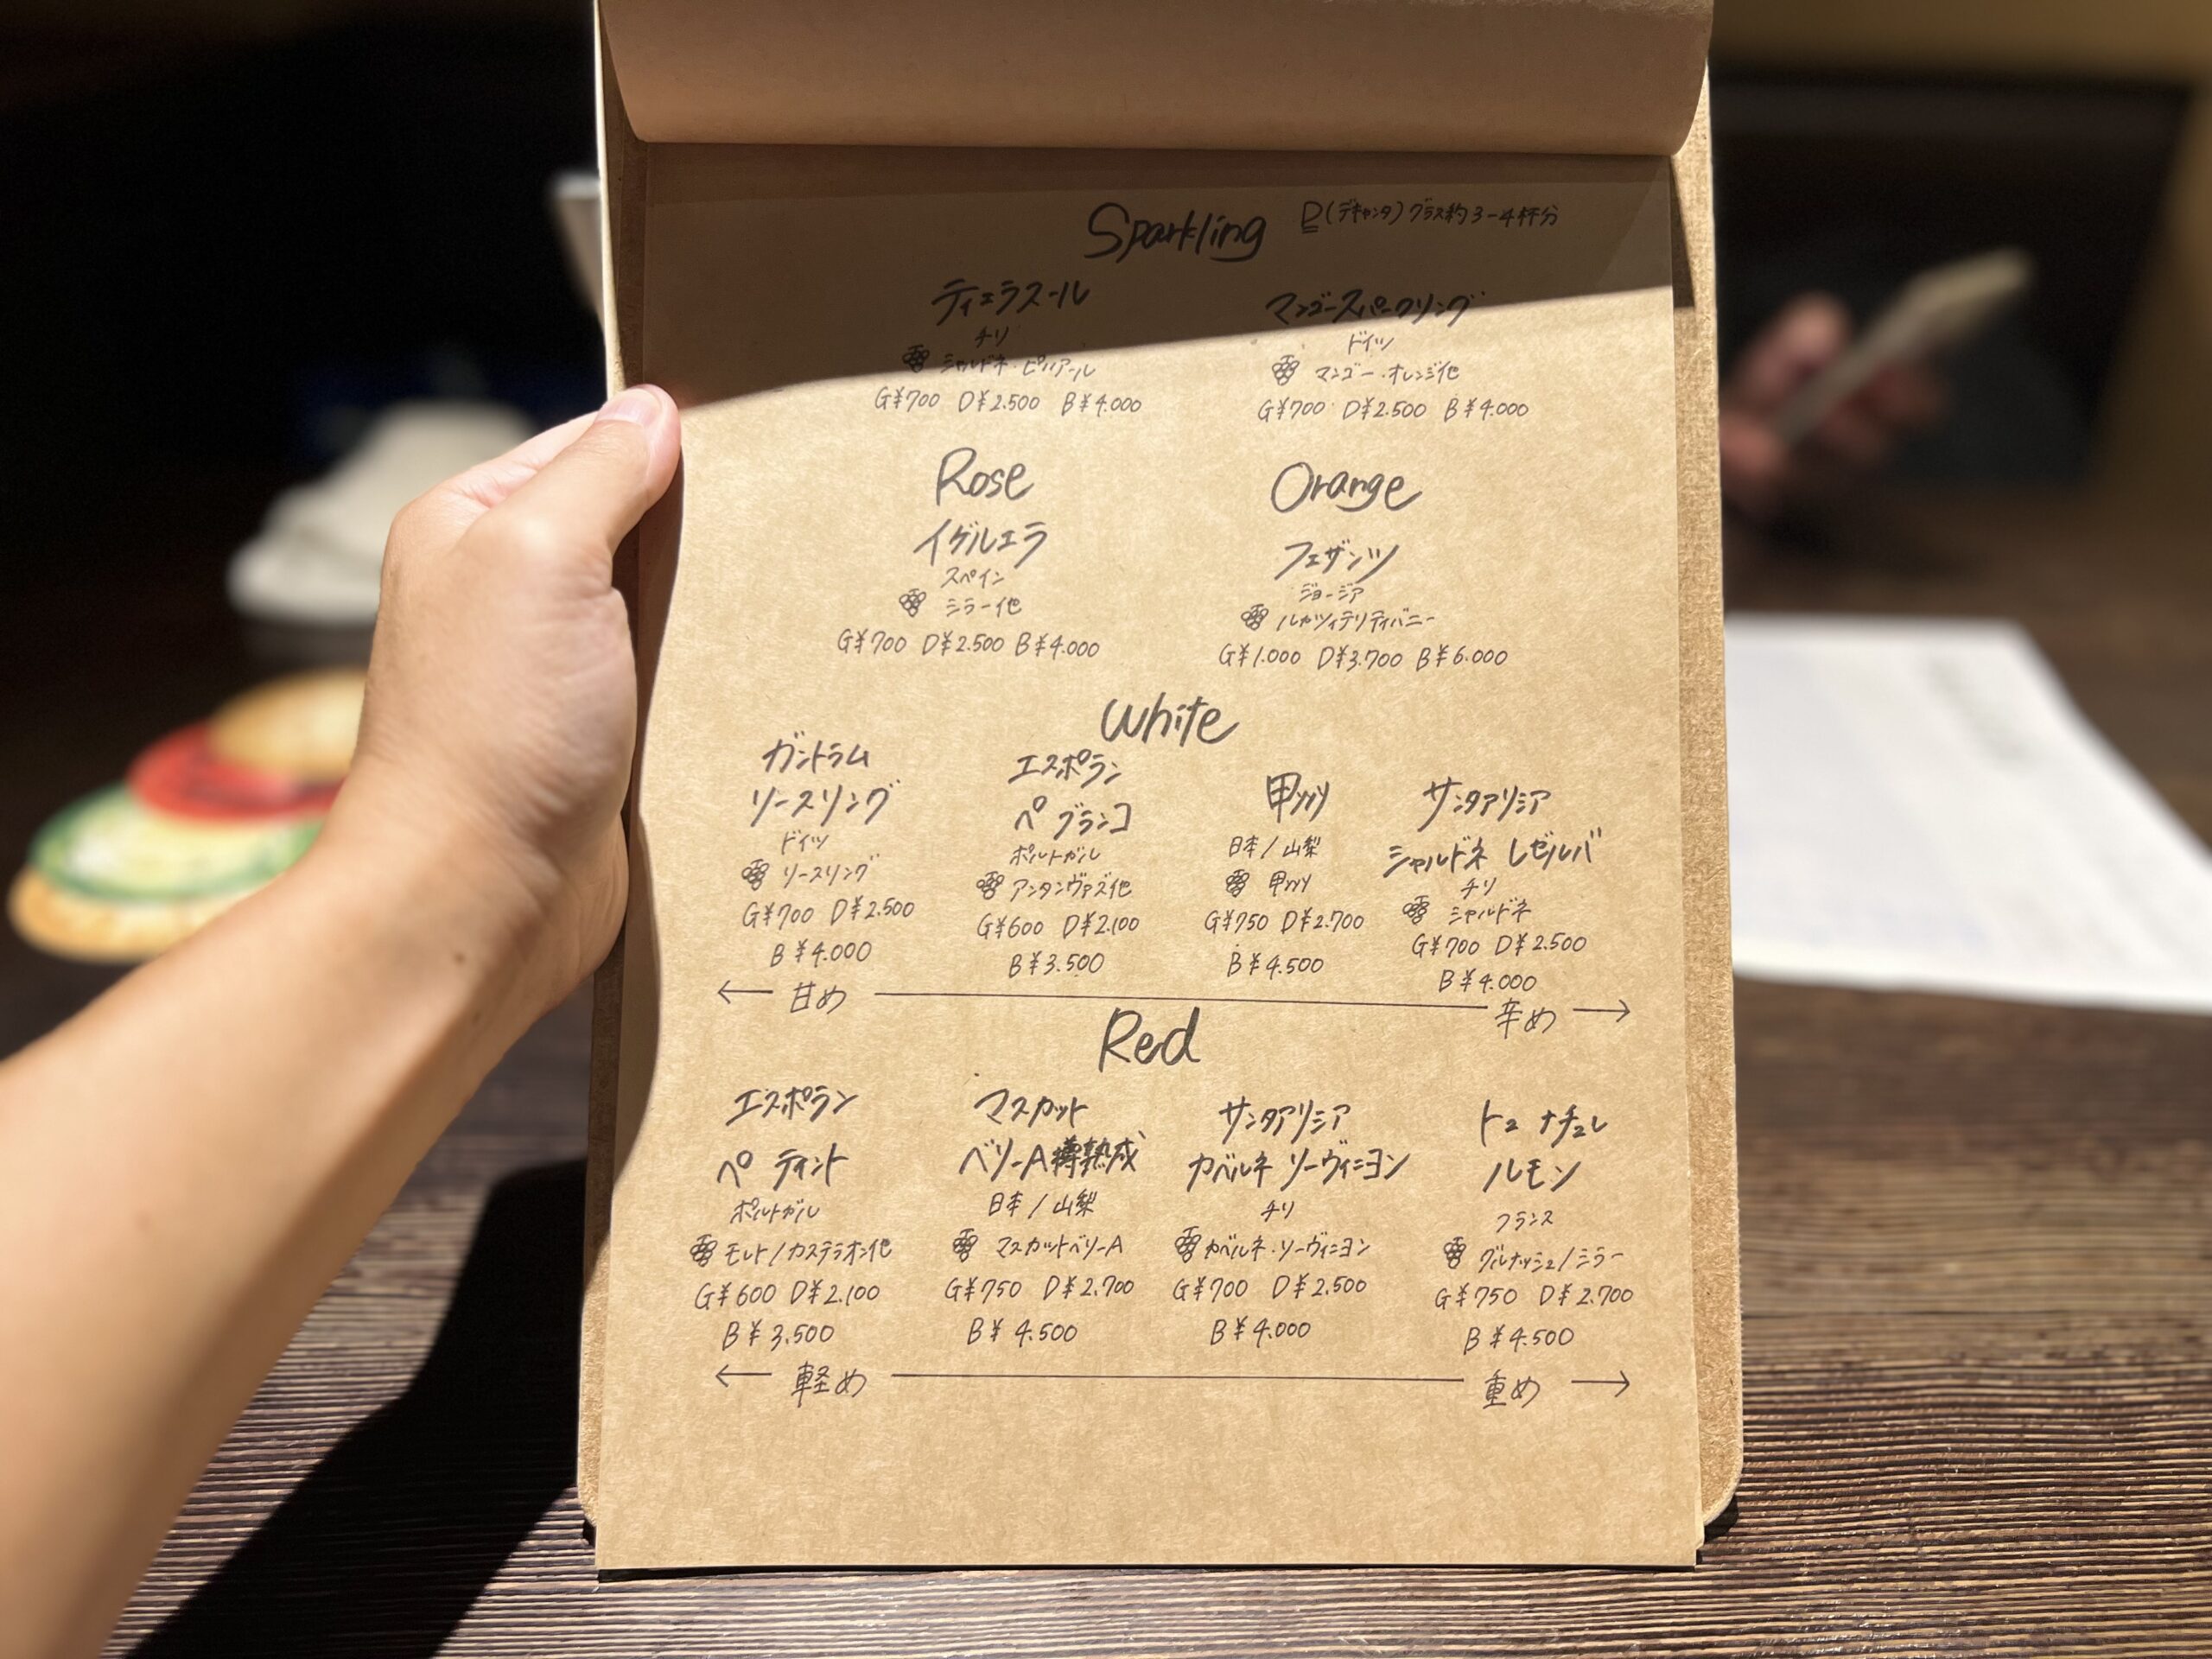 Sparkling D(デキャンタ)グラス約3-4杯分
ティエラスール
チリ
シャルドネ・ピノノアール
G¥700 D¥2.500 B¥4.000
マンゴースパークリング
ドイツ
マンゴー・オレンジ他
G¥700 D¥2.500 B¥4.000
Rose
イゲルエラ
スペイン
シラー他
G¥700 D¥2.500 B¥4.000
Orange
フェザンツ
ジョージア
ルカツィテリティバニー
G¥1.000 D¥3.700 B¥6.000
White
ガントラム
リースリング
ドイツ
リースリング
G¥700 D¥2.500
B¥4.000
エスポラン
ペ ブランコ
ポルトガル
アンタンヴァズ他
G¥600 D¥2.100
B¥3.500
甲州
日本/山梨
甲州
G¥750 D¥2.700
B¥4.500
サンタアリシア
シャルドネ レゼルバ
チリ
シャルドネ
G¥700 D¥2.500
B¥4.000
← 甘め — 辛め →
Red
エスポラン
ペ ティント
ポルトガル
モレト/カステラオン他
G¥600 D¥2.100
B¥3.500
マスカット
ベリーA樽熟成
日本/山梨
マスカットベリーA
G¥750 D¥2.700
B¥4.500
サンタアリシア
カベルネ ソーヴィニヨン
チリ
カベルネ・ソーヴィニヨン
G¥700 D¥2.500
B¥4.000
トュ ナチュレ
ルモン
フランス
グルナッシュ/シラー
G¥750 D¥2.700
B¥4.500
← 軽め — 重め →